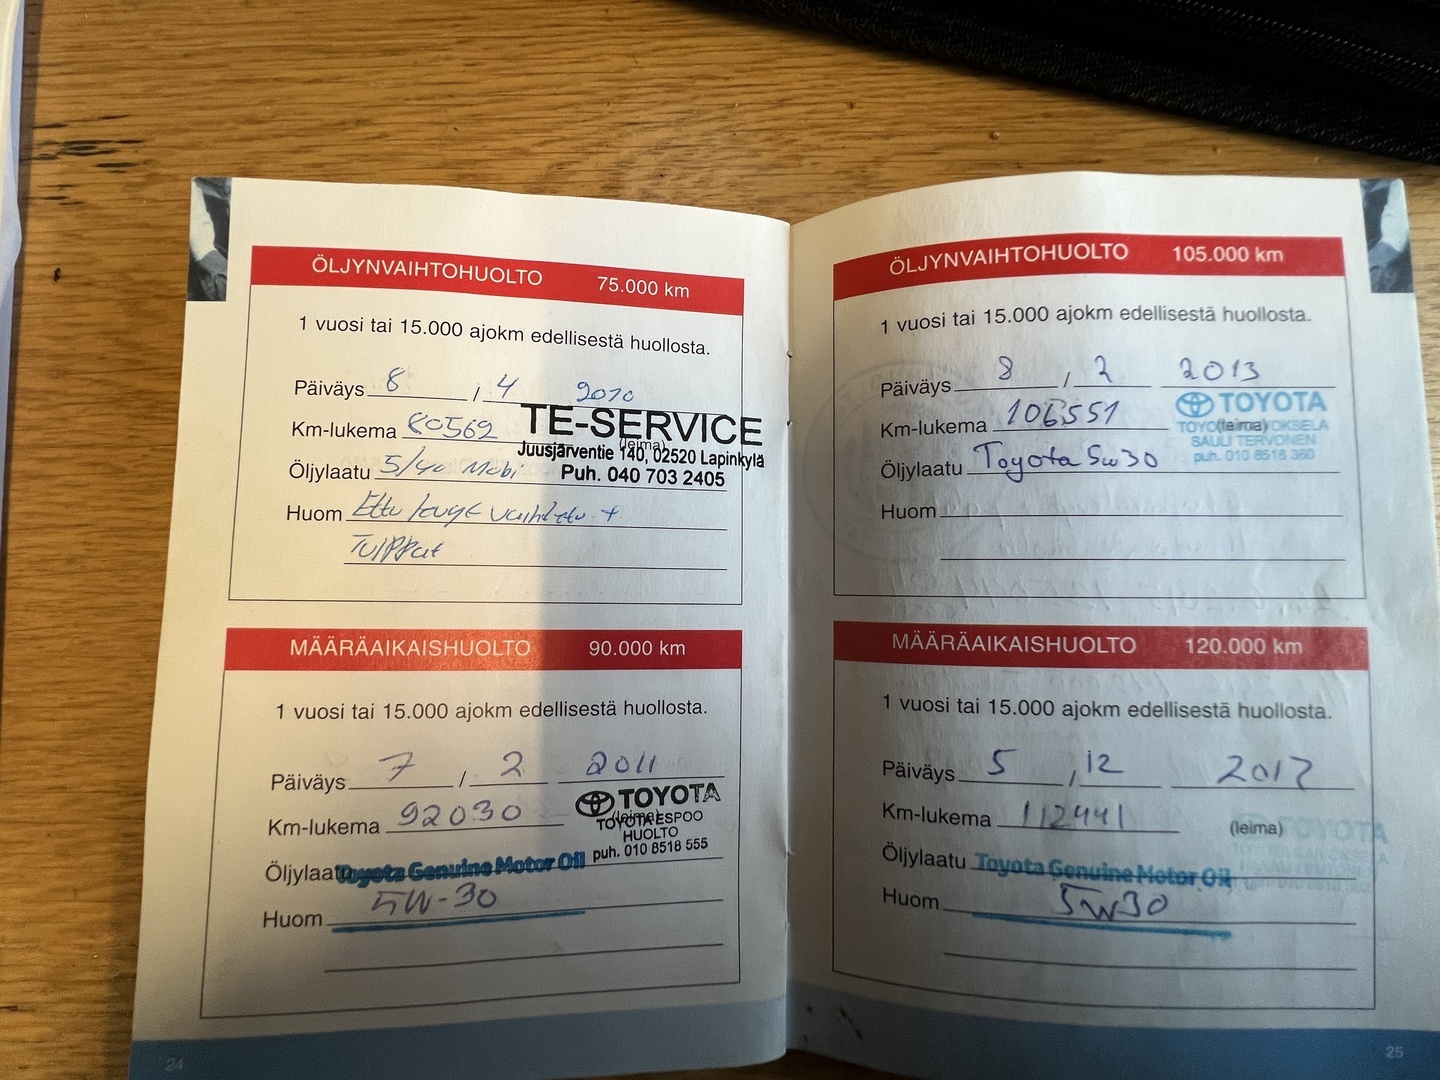 ÖLJYNVAIHTOHUOLTO 75.000 km
1 vuosi tai 15.000 ajokm edellisestä huollosta.
Päiväys 8 / 4 2010
Km-lukema 80569
TE-SERVICE
(leima)
Juusjärventie 140, 02520 Lapinkylä
Öljylaatu 5/40 Mobi
Puh. 040 703 2405
Huom Ettu vaihdettu +
Tulppat
MÄÄRÄAIKAISHUOLTO 90.000 km
1 vuosi tai 15.000 ajokm edellisestä huollosta.
Päiväys 7 / 2 2011
Km-lukema 92030
TOYOTA
(leima)
TOYOTA ESPOO
HUOLTO
puh. 010 8518 555
Öljylaatu Toyota Genuine Motor Oil
Huom 5W-30
24
ÖLJYNVAIHTOHUOLTO 105.000 km
1 vuosi tai 15.000 ajokm edellisestä huollosta.
Päiväys 8 / 2 2013
Km-lukema 106551
TOYOTA
(leima) OKSELA
SAULI TERVONEN
puh. 010 8518 380
Öljylaatu Toyota 5w30
Huom
MÄÄRÄAIKAISHUOLTO 120.000 km
1 vuosi tai 15.000 ajokm edellisestä huollosta.
Päiväys 5 / 12 2017
Km-lukema 112441
(leima)
TOYOTA
Öljylaatu Toyota Genuine Motor Oil
Huom 5W30
25